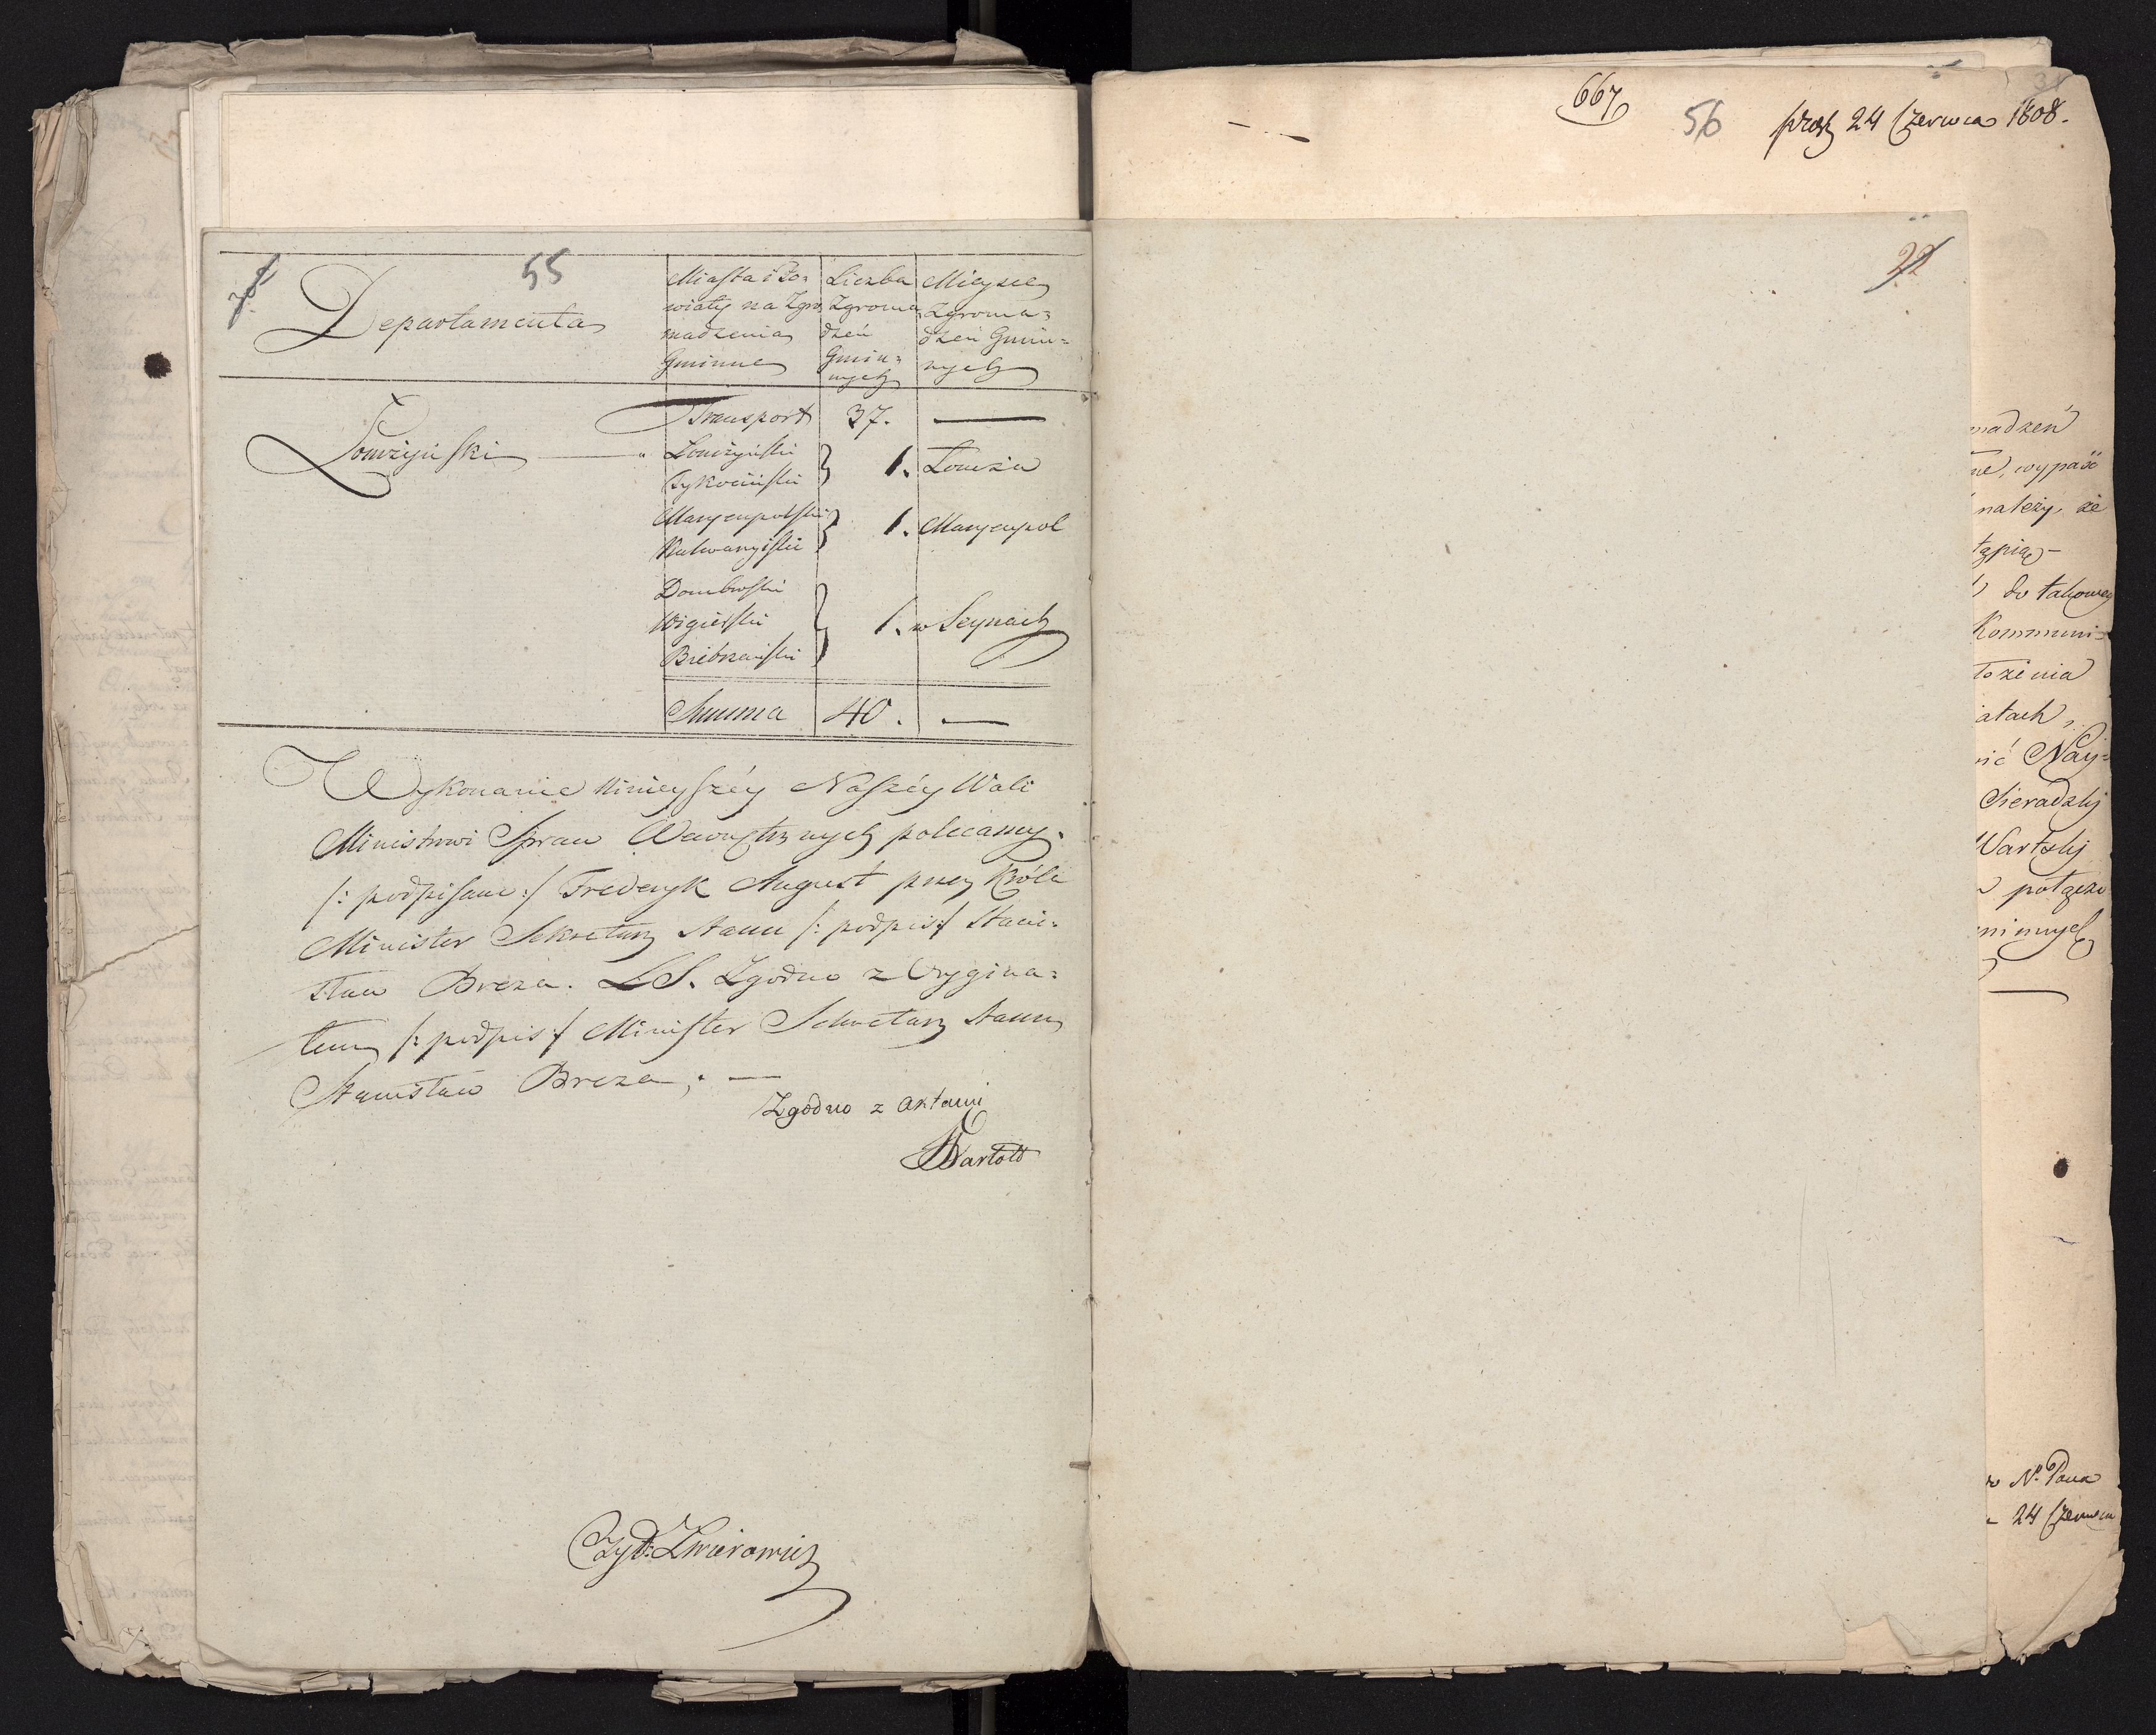 55
Departamenta
Miasta i Po=
wiaty na Zgro
madzenia
Gminne
Liczba
Zgroma
dzeń
Gmin=
nych
Mieysce
Zgroma=
dzeń Gmin=
nych
Transport 37. —
Łomżyński — Łomżyński
Tykociński
1. Łomża
Maryenpolski
Kalwaryiski
1. Maryenpol
Dombrowski
Wigierski
Biebrzański
1. w Seynach
Summa 40. —
Wykonanie ninieyszéy Naszéy Woli
Ministrowi Spraw Wewnętrznych polecamy.
/: podpisano :/ Frederyk August przez Króla
Minister Sekretarz Stanu /: podpis :/ Stani=
sław Breza. LS. Zgodno z Orygina=
łem /: podpis :/ Minister Sekretarz Stanu
Stanisław Breza, . —
Zgodno z aktami
Czyt: Zwierowicz
667
56
24 Czerwca 1808.
22
madzeń
wypaść
należy, że
tąpią –
do takowey
Kommuni=
łożenia
atach,
Nay=
Sieradzkij
Wartskij
połącze
minnych
No. Pana
24 Czerwca